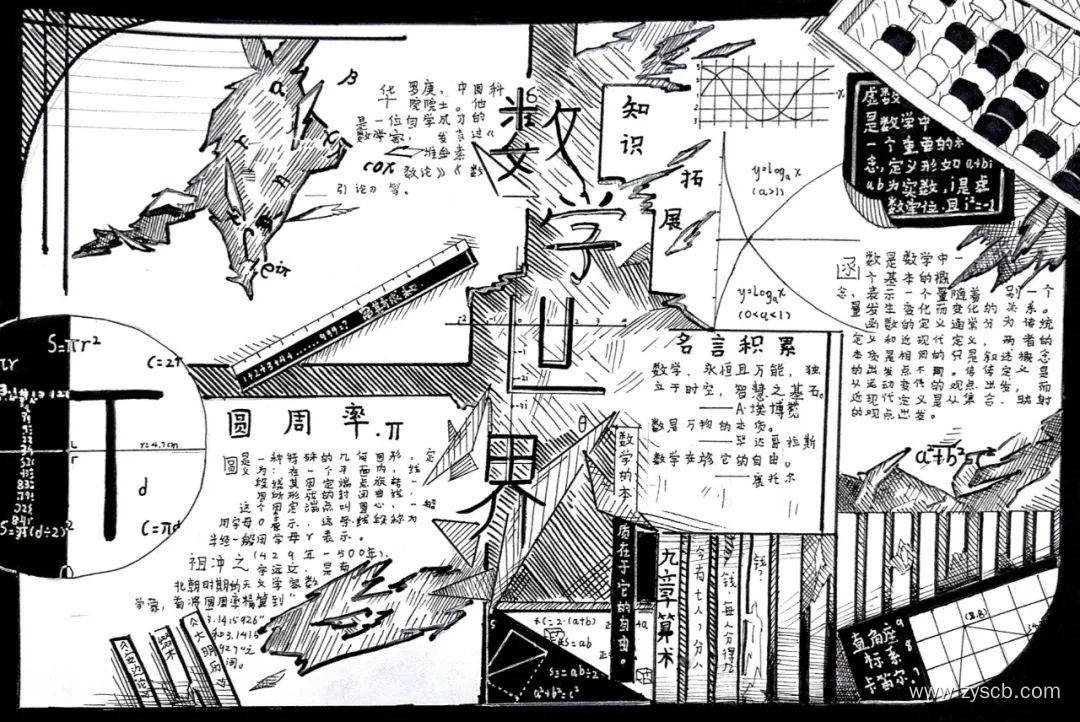 数学世界
知识拓展
华罗庚,中国科
院院士。他
是一位自学成才的
数学家,发表过《
堆垒素
数论》《数
引论》等。
cox
eiπ
虚数
是数学中
一个重要的
念,定义形如a+bi
ab为实数,i是虚
数单位,且i²=-1
y=logₐx
(a>1)
y=logₐx
(0<a<1)
函数是数学中一
个基本的概
念,表示一个量随着另一个
量发生变化而变化的关系。
函数的定义通常分为传统
定义和近现代定义,两者的
本质是相同的只是叙述概念
的出发点不同。传统定义是
从运动变化的观点出发,而
近现代定义是从集合、映射
的观点出发。
a²+b²=c²
1+2+3+4+......+99=?
S=πr²
C=2π
πr
r=4.7cm
d
C=πd
S=π(d÷2)²
圆周率.π
圆是一种特殊的几何图形,定
为:在一个平面内,线
段绕其固定端点旋转一
周动形成的封闭曲线,
这个固定端点叫圆心,一般
用字母O表示,这条线段称为
半径一般用字母r表示。
祖冲之(429年-500年),
字文远,是南
北朝时期的天文学家数
学家,首将圆周率精算到
3.1415926
和3.1415
927
间。
名言积累
数学,永恒且万能,独
立于时空,智慧之基石。
——A·埃博赞
数是万物的本质。
——毕达哥拉斯
数学在于它的自由。
——康托尔
数学的本
质在于它的自由。
九章算术
今有七人,分八
钱,每人分得几
钱?
(=2·(a+b)
S=ab
S=ab÷2
a²+b²=c²
直角座
标系
卡笛尔
www.zyscb.com